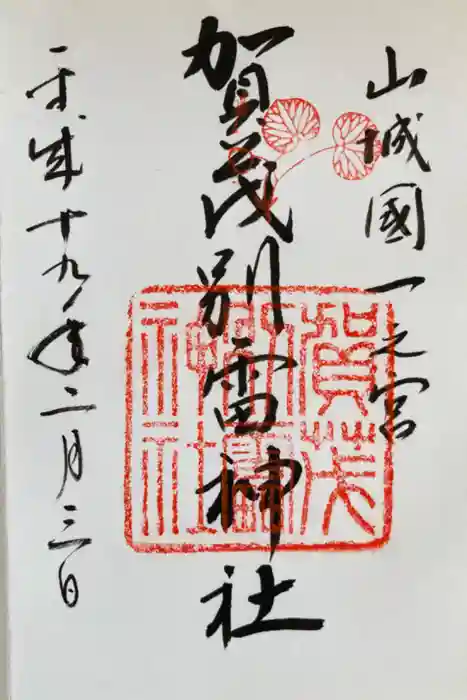 山城國一之宮
賀茂別雷神社
平成十九年二月三日
賀茂
別雷
神社